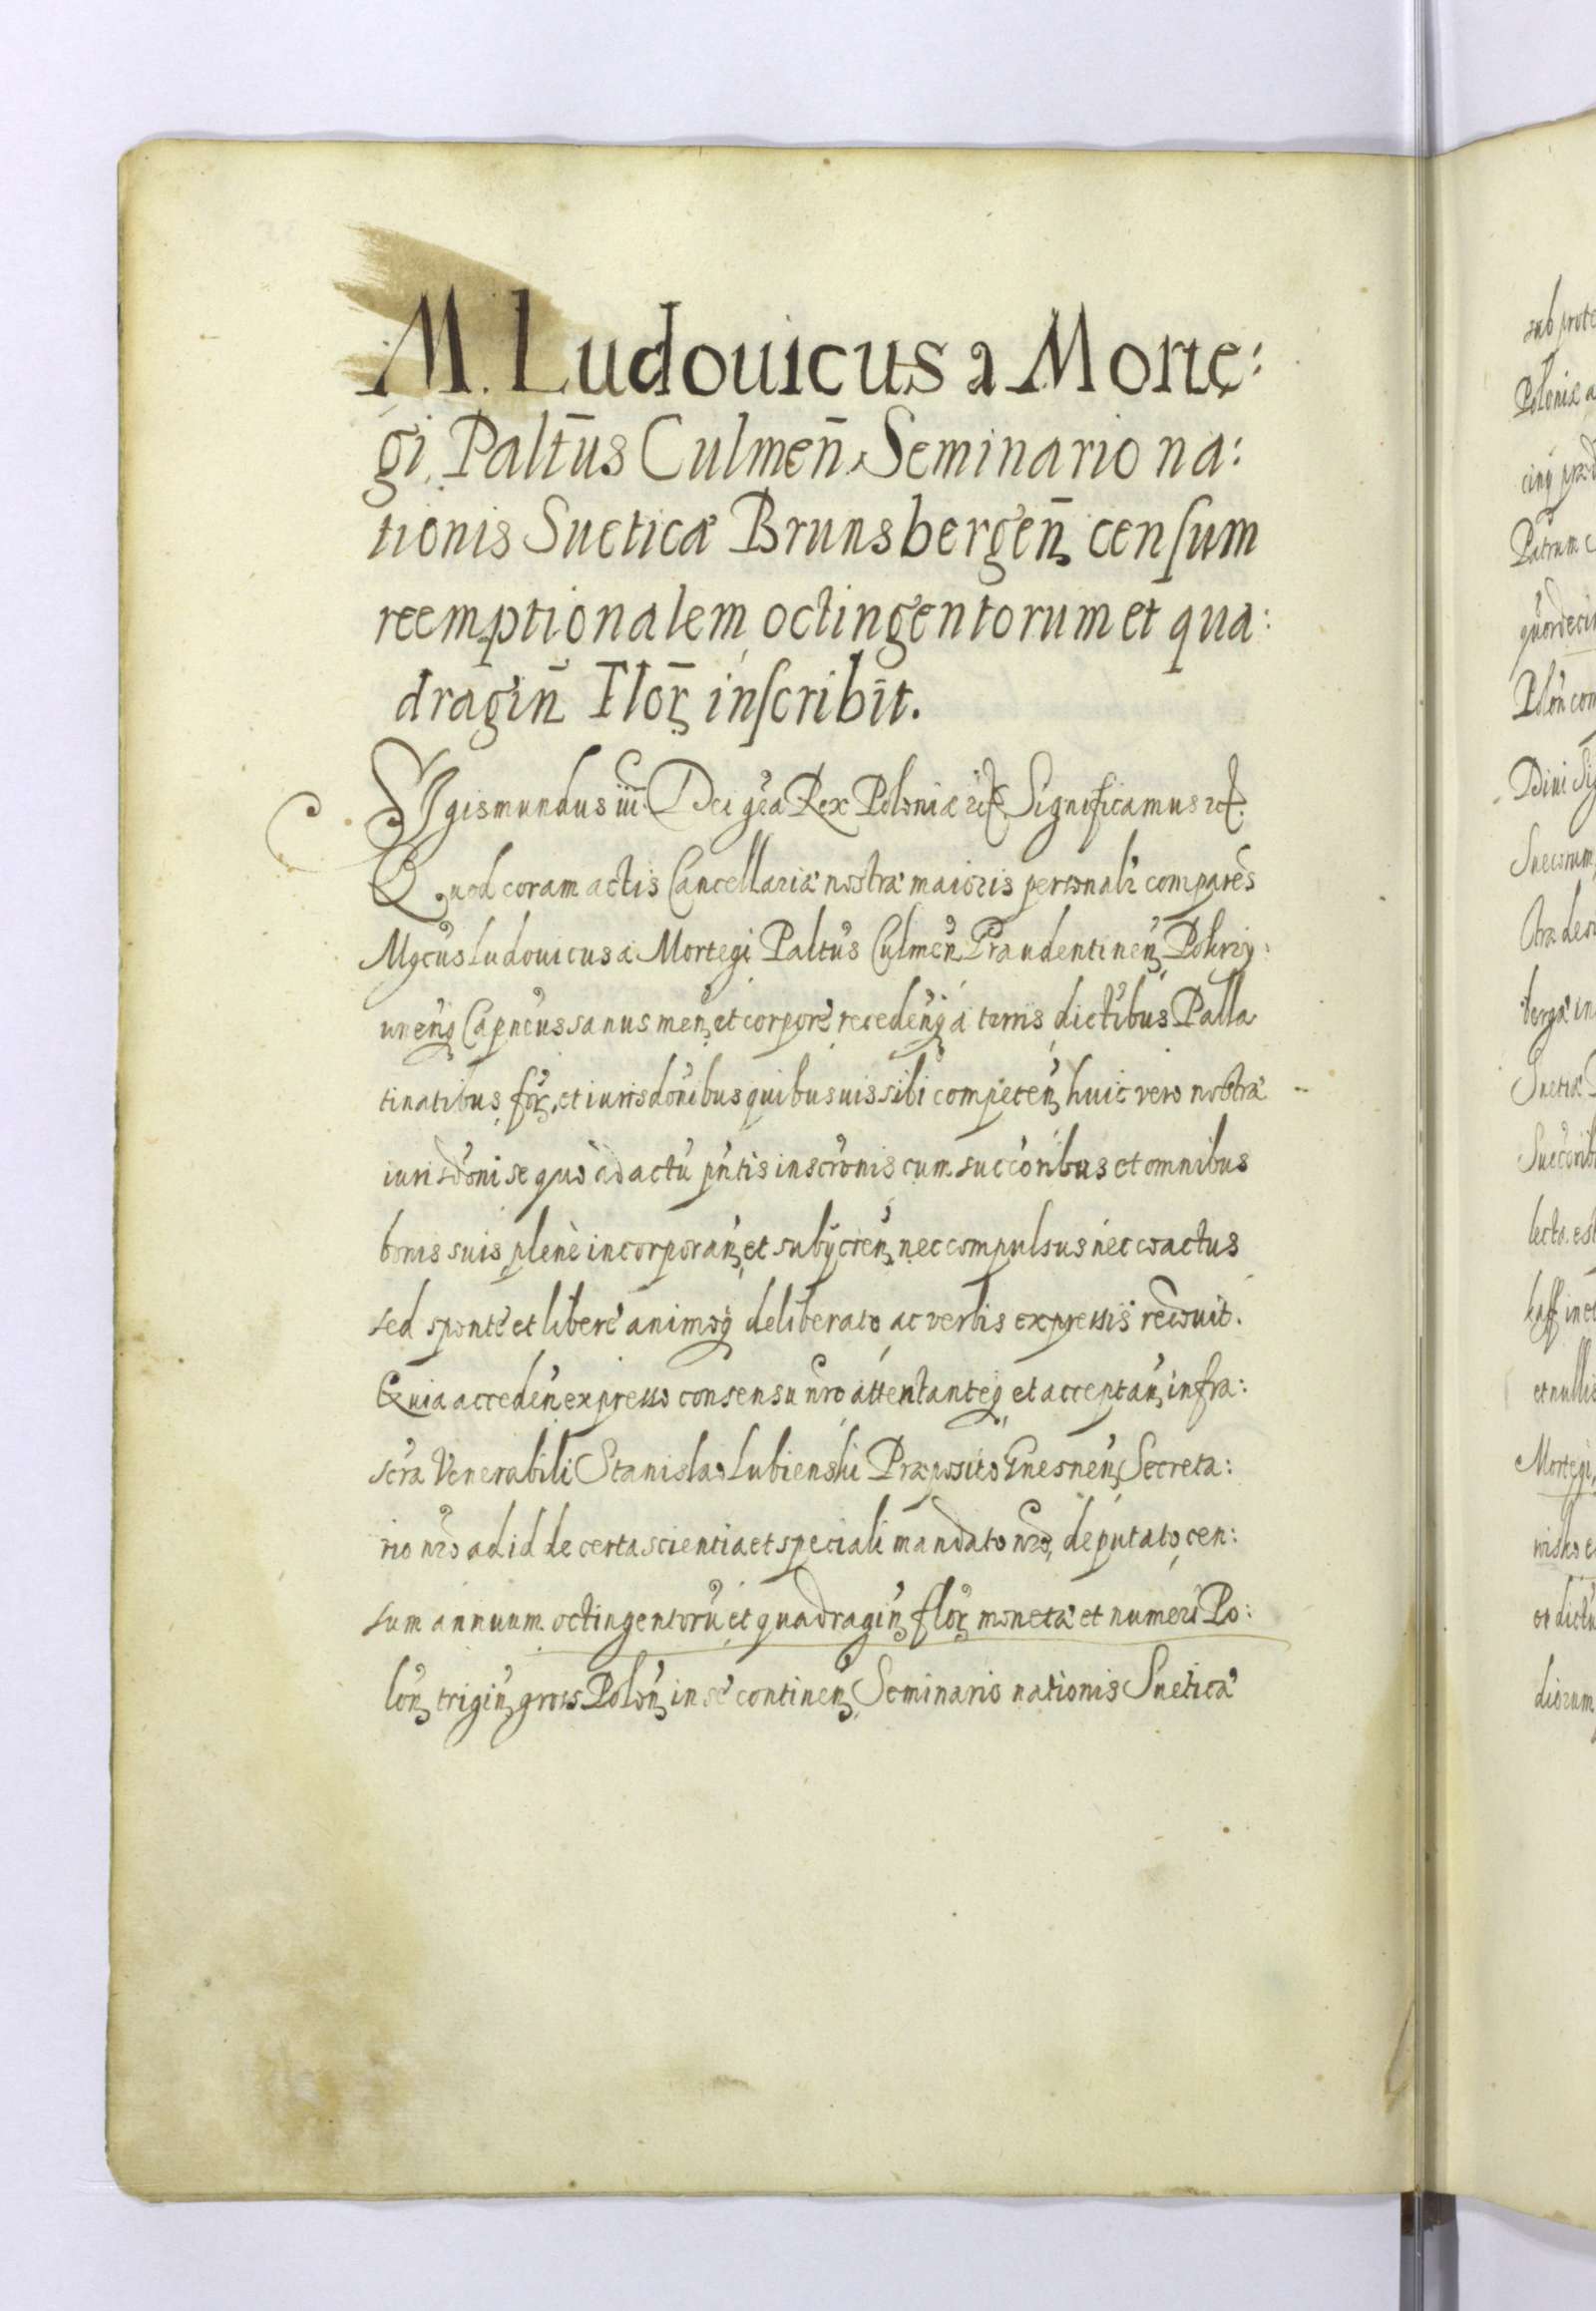 M. Ludouicus a Morte:
gi, Palt̄us Culmen̄ Seminario na:
tionis Sueticæ Brunsbergen̄ censum
reemptionalem octingentorum et qua:
dragin̄ Flor̄ inscribit.
Sigismundus iii. Dei gr̄a Rex Poloniæ etc. Significamus etc.
Quod coram actis Cancellariæ nostræ maioris personalr̄ comparēs
Mgcūs Ludouicus a Mortegi Paltūs Culmen̄ Graudentinen̄ Pokrziy:
wnen̄q Capneūs sanus men̄ et corpore receden̄q á terris dictībus Palla
tinatibus for̄. et iurisdōnibus quibusuis sibi competen̄ huic vero nostræ
iurisdōni se quo ad actū pn̄tis inscrōnis cum succōribus et omnibus
bonis suis plenè incorporan̄ et subijcien̄ nec compulsus nec coactus
sed sponte et liberè animoq deliberato ac verbis expressis recōuit.
Quia acceden̄ expresso consensu nr̄o attentanteq et acceptan̄ infra:
scr̄a Venerabili Stanislao Lubienski Præposito Gnesnen̄ Secreta:
rio nr̄o ad id de certa scientia et speciali mandato nr̄o, deputato, cen:
sum annuum octingentorū et quadragin̄ flor̄ monetæ et numeri Po:
lon̄ trigin̄ gross Polon̄ in se continen̄ Seminario nationis Sueticæ
sub prote
Poloniæ a
Patrum c
Polon̄ con
Diui Sig
Suecorum
bergæ in
Suetiæ
lecta est
et nullis
Mortegi
diorum